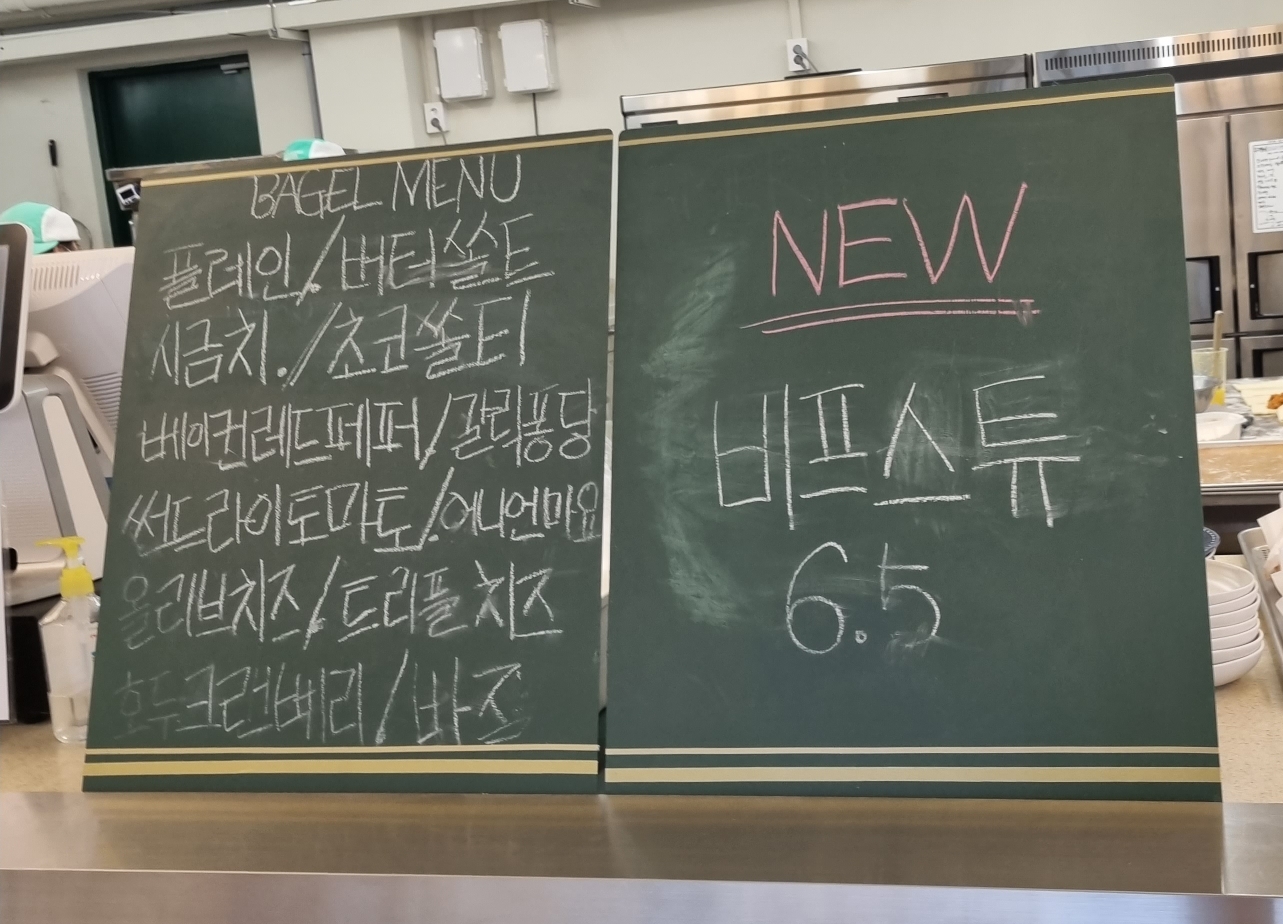 BAGEL MENU
플레인/버터쏠트
시금치./초코쏠티
베이컨레드페퍼/갈릭퐁당
썬드라이토마토/어니언마요
올리브치즈/트리플치즈
호두크랜베리/바즈
NEW
비프스튜
6.5